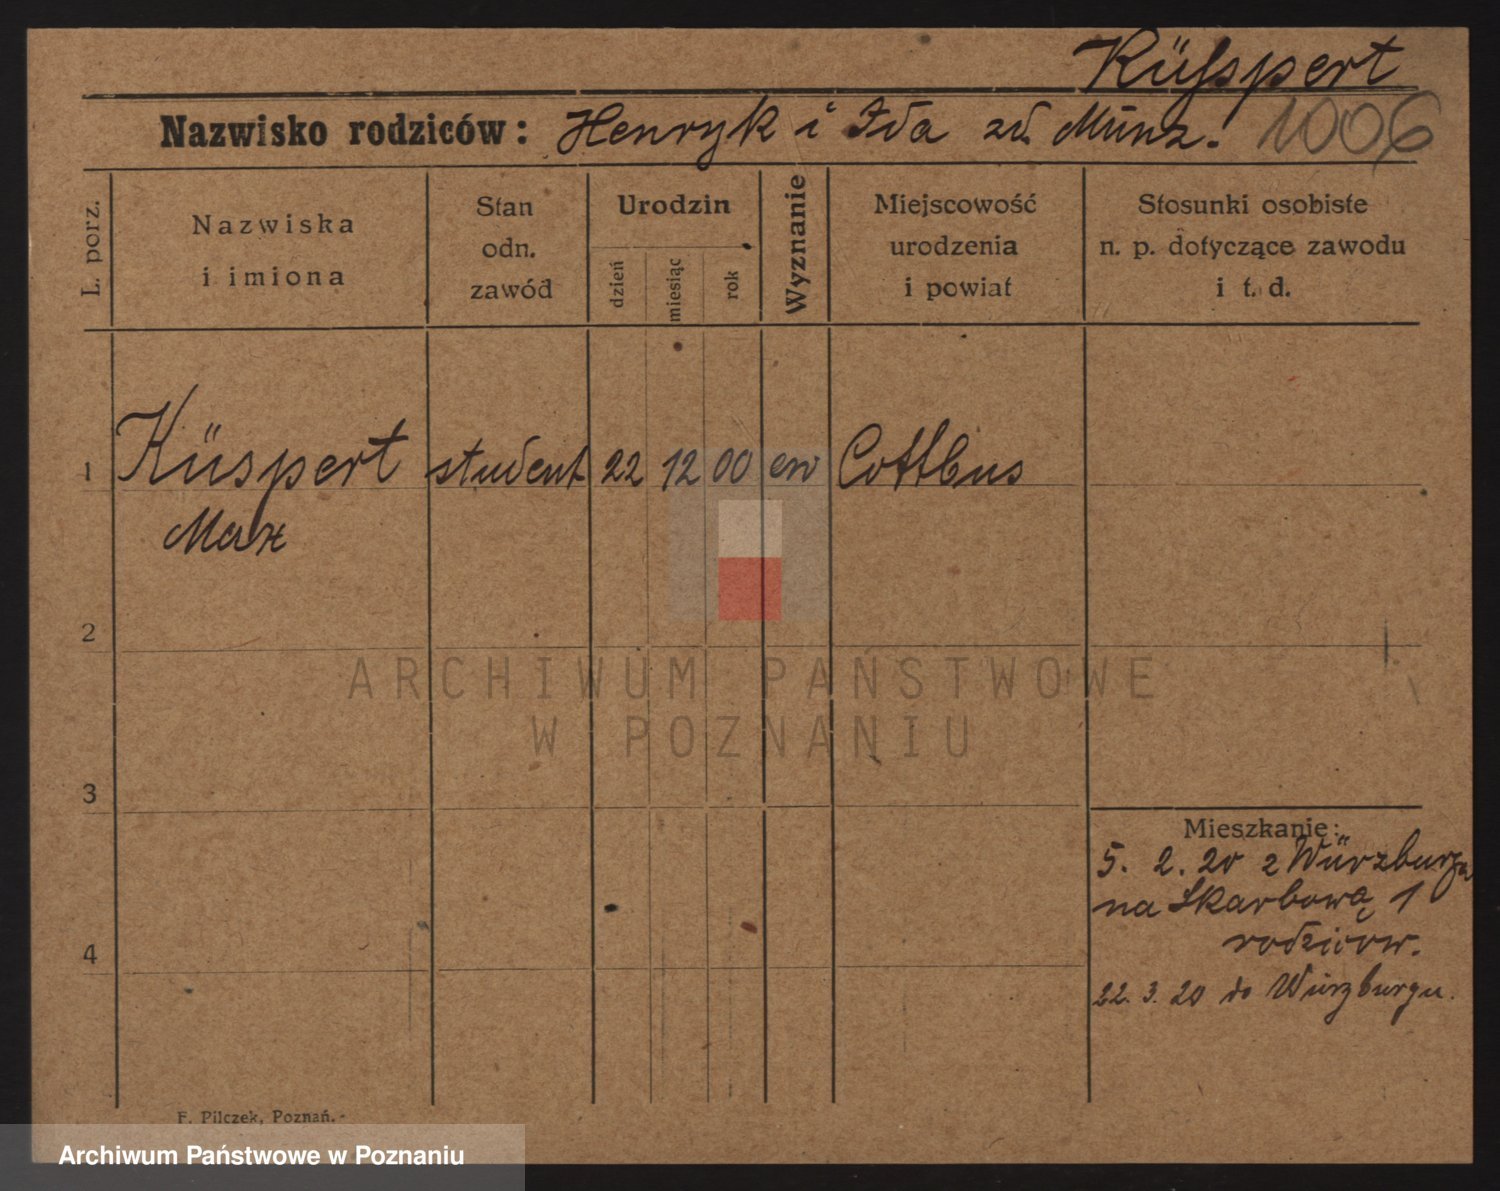 Küsspert
Nazwisko rodziców: Henryk i Ida zd. Münz. 1006
L. porz.
Nazwiska
i imiona
Stan
odn.
zawód
Urodzin
dzień
miesiąc
rok
Wyznanie
Miejscowość
urodzenia
i powiat
Stosunki osobiste
n. p. dotyczące zawodu
i t. d.
1 Küspert student 22 12 00 ew Cottbus
Max
2
3
4
Mieszkanie:
5. 2. 20 z Würzburga
na Skarbową 1
rodziców.
22. 3. 20 do Würzburgu.
F. Pilczek, Poznań.-
ARCHIWUM PAŃSTWOWE
W POZNANIU
Archiwum Państwowe w Poznaniu